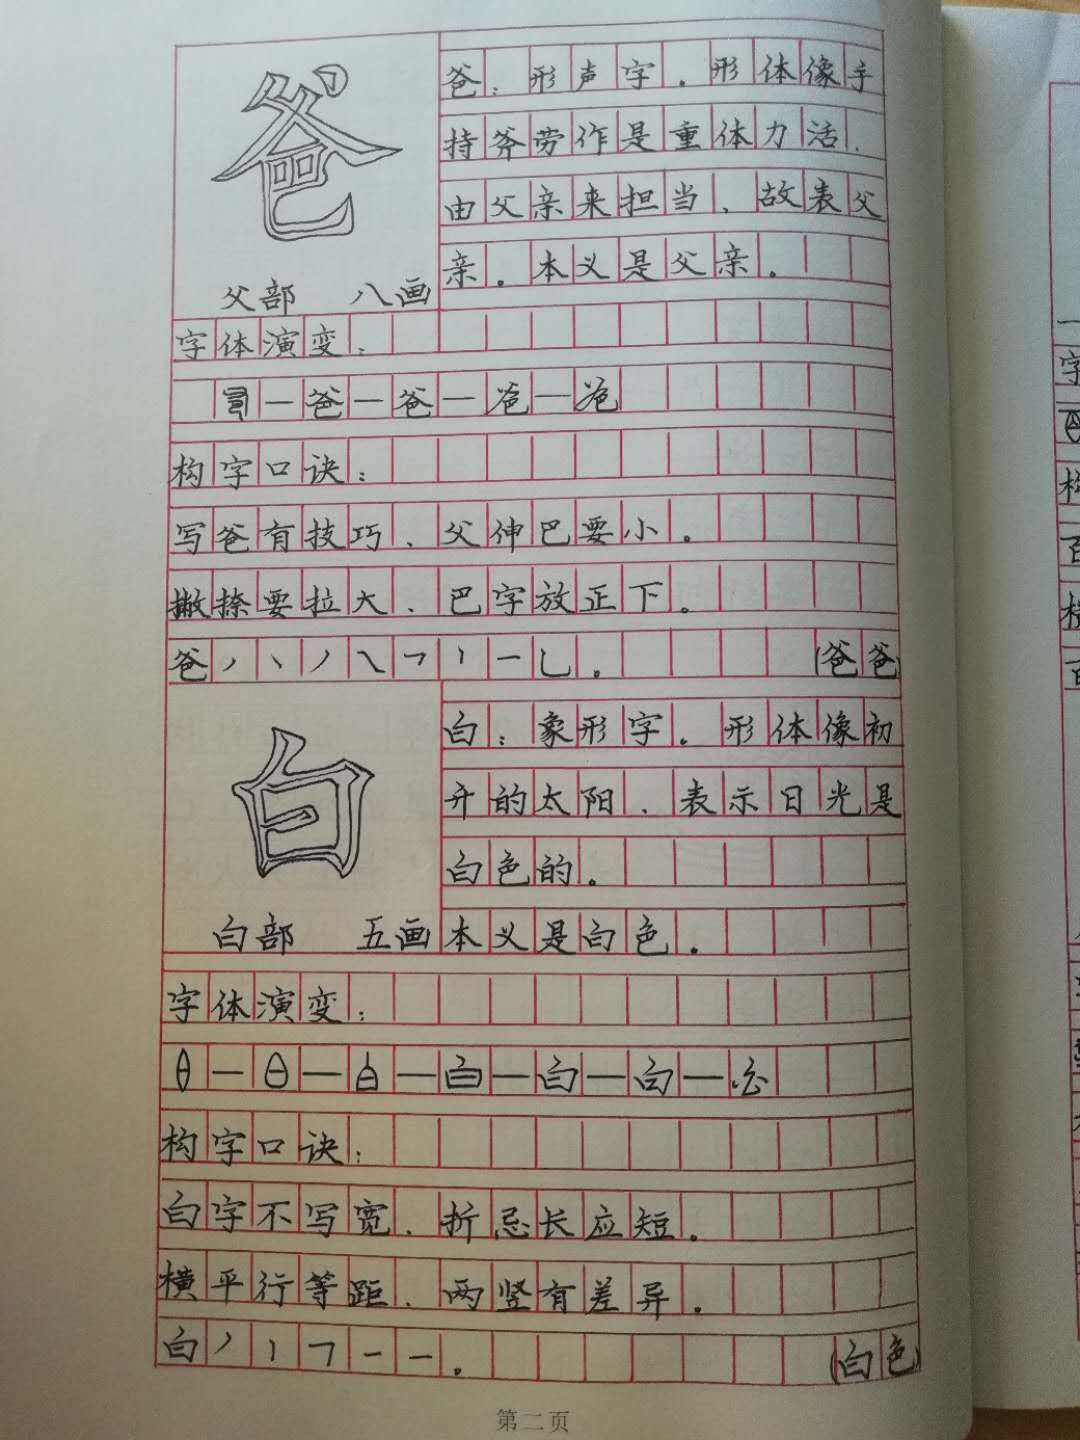 爸
父部 八画
爸：形声字。形体像手
持斧劳作是重体力活、
由父亲来担当、故表父
亲。本义是父亲。
字体演变：
爸—爸—
构字口诀：
写爸有技巧、父伸巴要小。
撇捺要拉大、巴字放正下。
爸丿丶丿㇏𠃍丨一乚。（爸爸）
白
白部 五画
白：象形字。形体像初
升的太阳、表示日光是
白色的。
本义是白色。
字体演变：
白—白
构字口诀：
白字不写宽、折忌长应短。
横平行等距、两竖有差异。
白丿丨𠃍一一。（白色）
第二页